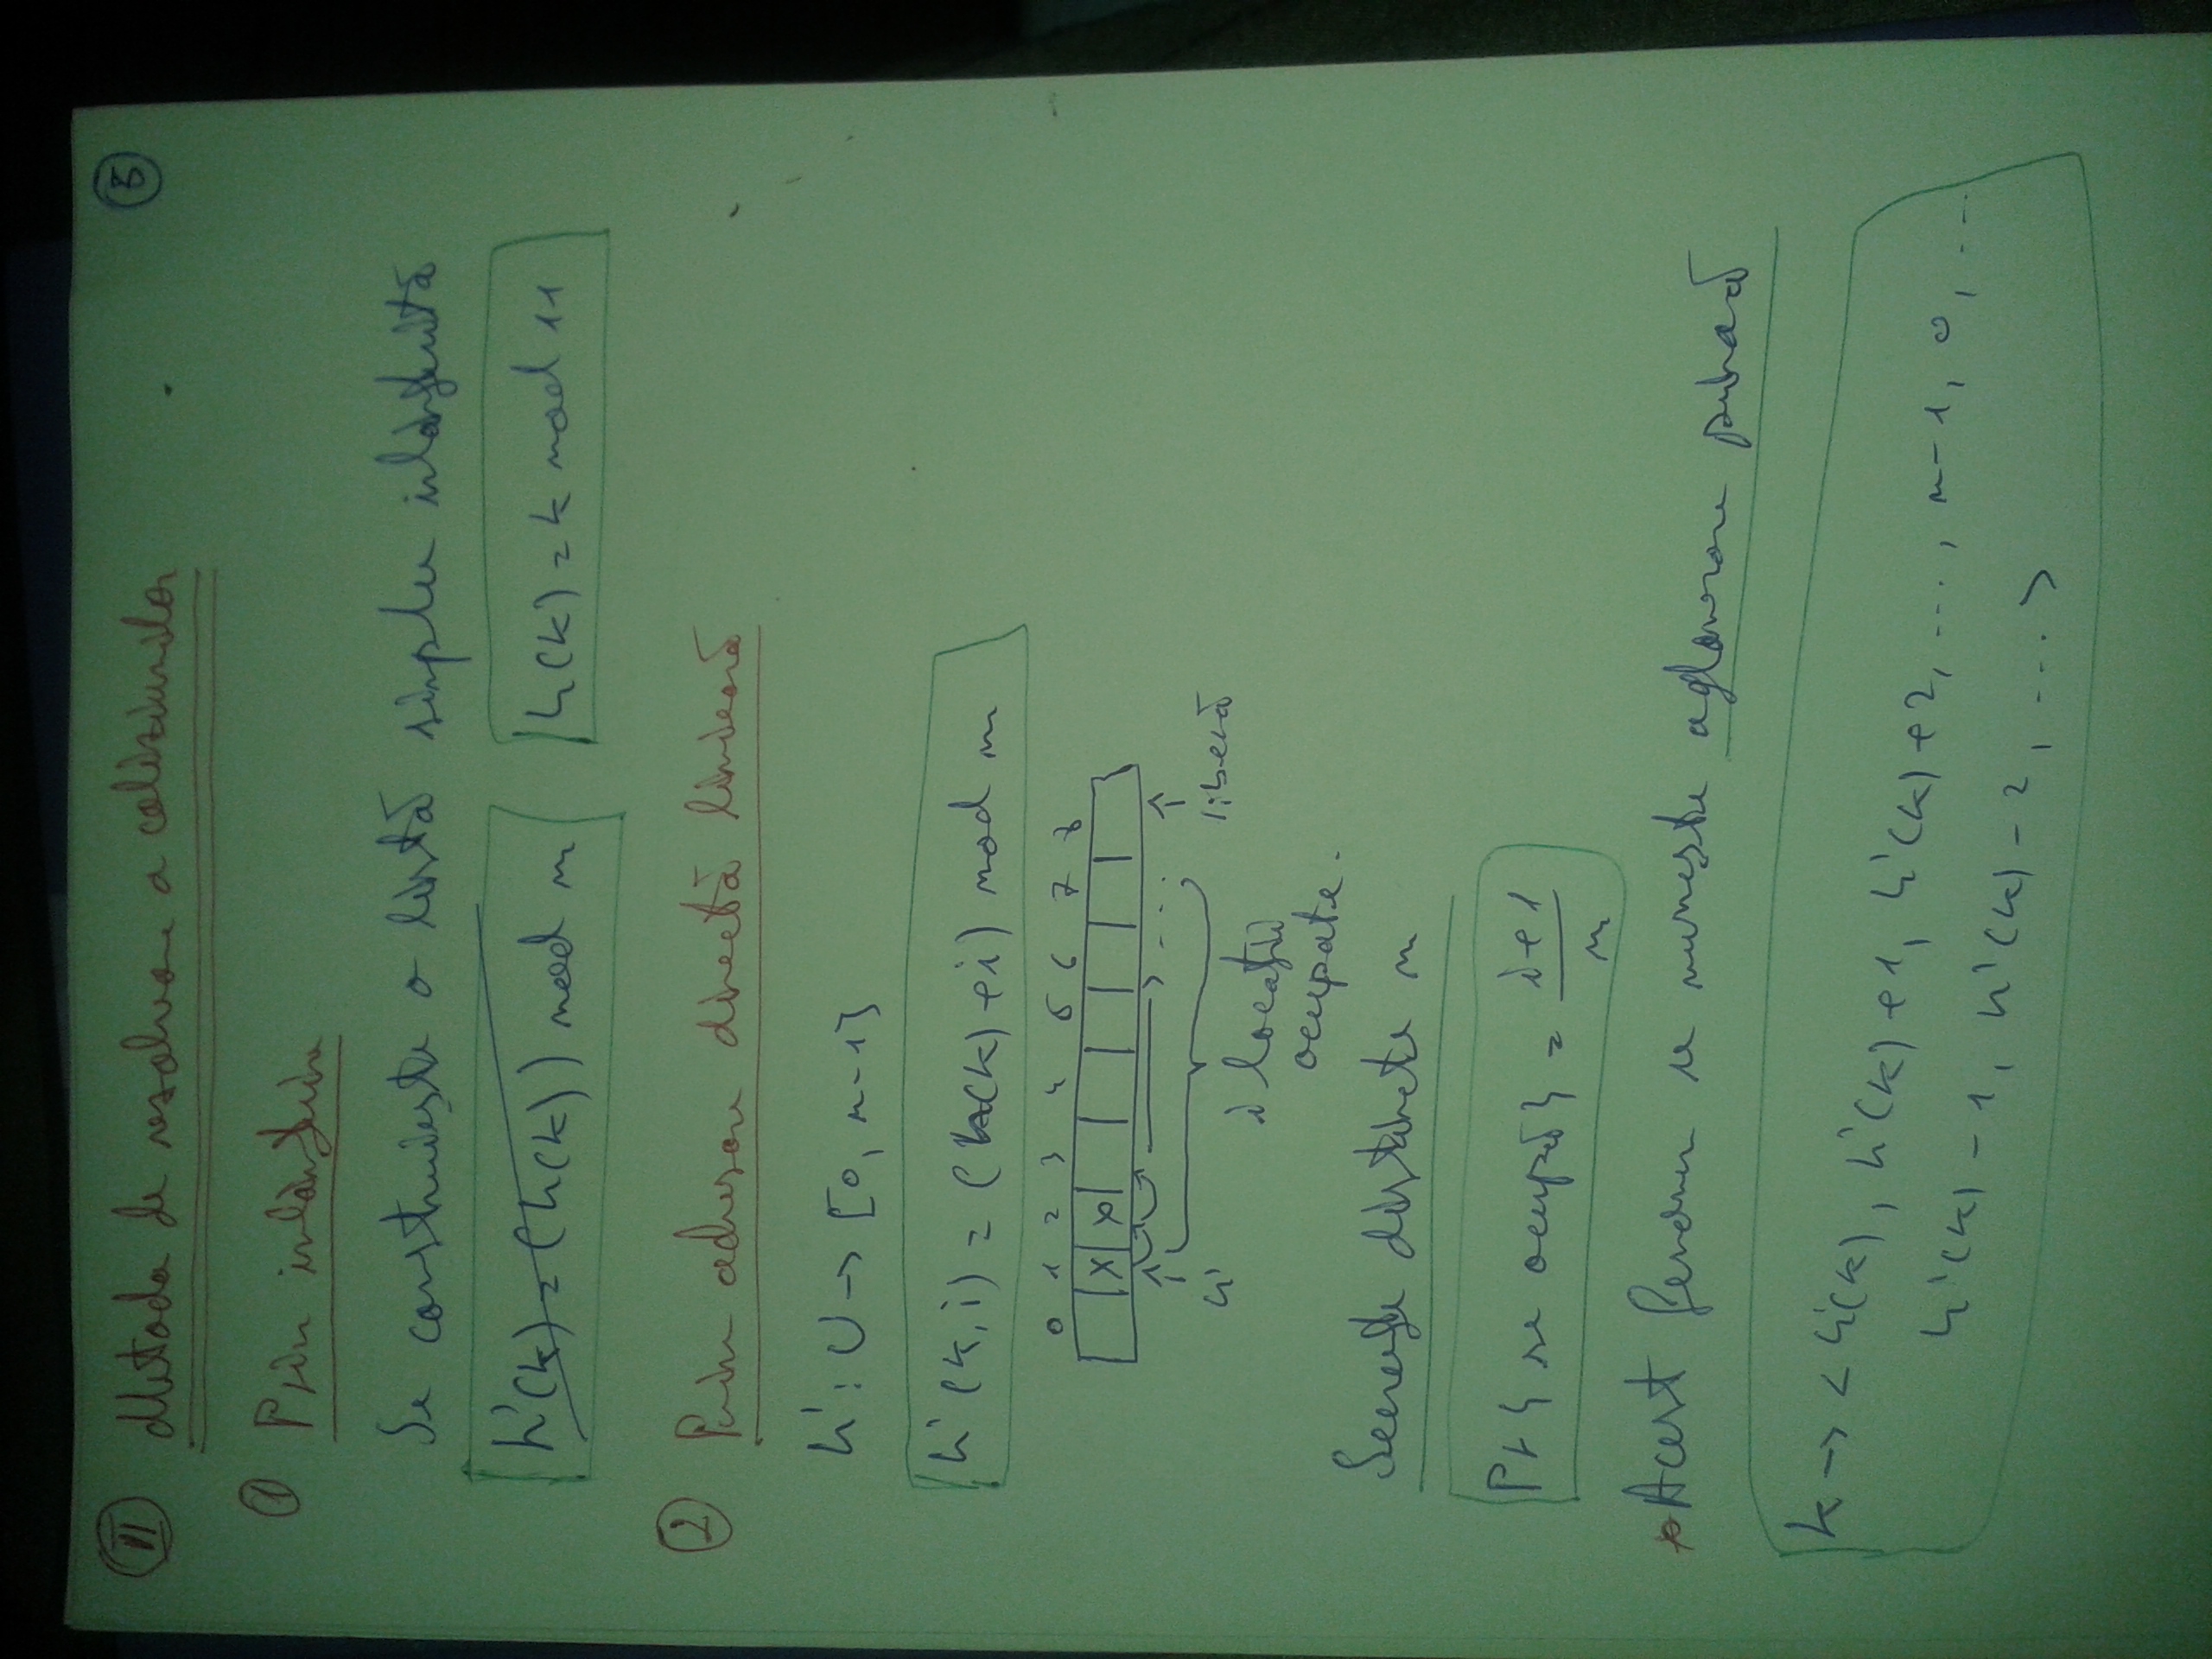 5
VI Metoda de rezolvare a coliziunilor
1 Prin înlănțuire
Se construiește o listă simplu înlănțuită
h'(k) = (h(k)) mod m
h(k) = k mod 11
2 Prin adresare directă liniară
h' : U → [0, m-1}
h'(k, i) = (h(k) + i) mod m
0 1 2 3 4 5 6 7 8
x x
h' liberă
i locații
ocupate.
Secvențe distincte m
Pr { se ocupă } = i+1 / m
* Acest fenomen se numește aglomerare primară
k → < h'(k), h'(k)+1, h'(k)+2, ..., m-1, 0, ...
h'(k)-1, h'(k)-2, ... >